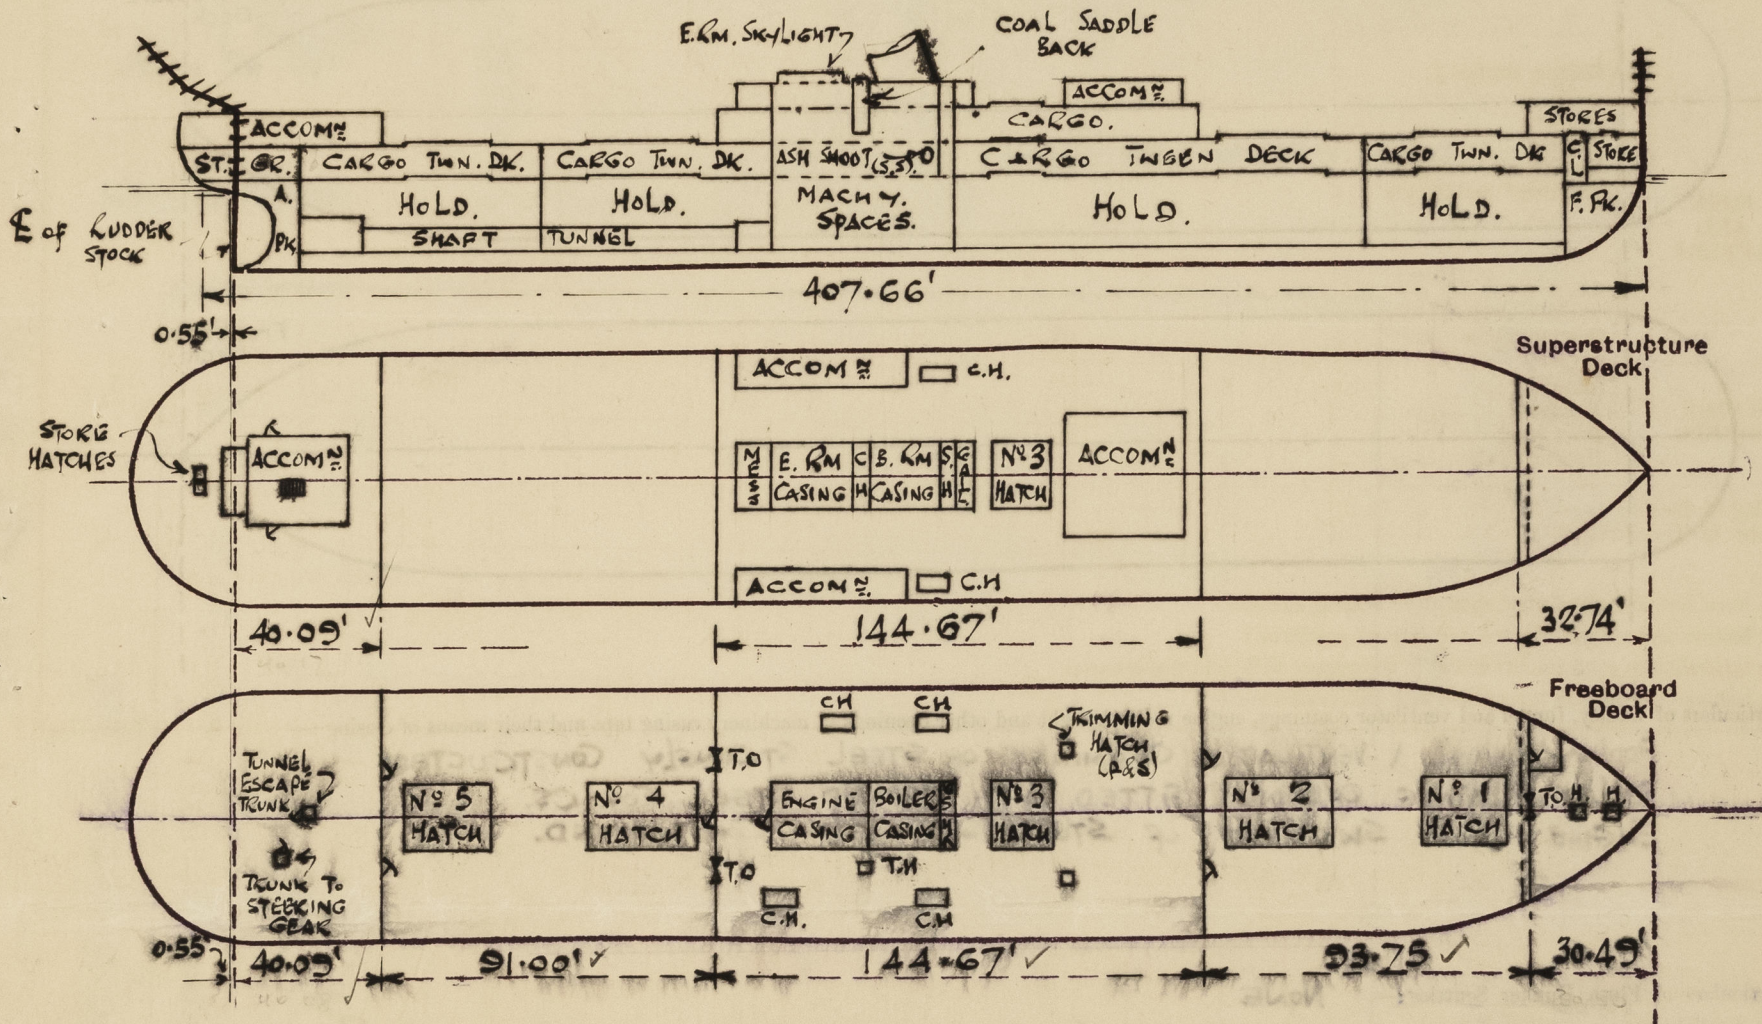 E.RM. SKYLIGHT
COAL SADDLE
BACK
ACCOMN
ACCOMN
CARGO.
STORES
ST. GR.
CARGO TWN. DK.
CARGO TWN. DK.
ASH SHOOT (P.S)
CARGO TWEEN DECK
CARGO TWN. DK
C.L
STORE
A.
PK.
HOLD.
HOLD.
MACHY.
SPACES.
HOLD.
HOLD.
F. PK.
SHAFT TUNNEL
℄ OF RUDDER
STOCK
407.66'
0.55'
Superstructure
Deck
ACCOMN
C.H.
STORE
HATCHES
ACCOMN
MESS
E. RM
CASING
CH
B. RM
CASING
S.H
GAL.
No 3
HATCH
ACCOMN
ACCOMN
C.H
40.09'
144.67'
32.74'
Freeboard
Deck
CH
CH
TRIMMING
HATCH
(P&S)
T.O
TUNNEL
ESCAPE
TRUNK
No 5
HATCH
No 4
HATCH
ENGINE
CASING
BOILER
CASING
No 3
HATCH
No 2
HATCH
No 1
HATCH
TO
H
H
T.O
T.H
TRUNK TO
STEERING
GEAR
C.H.
CH
0.55'
40.09'
91.00'
144.67'
93.75
30.49'